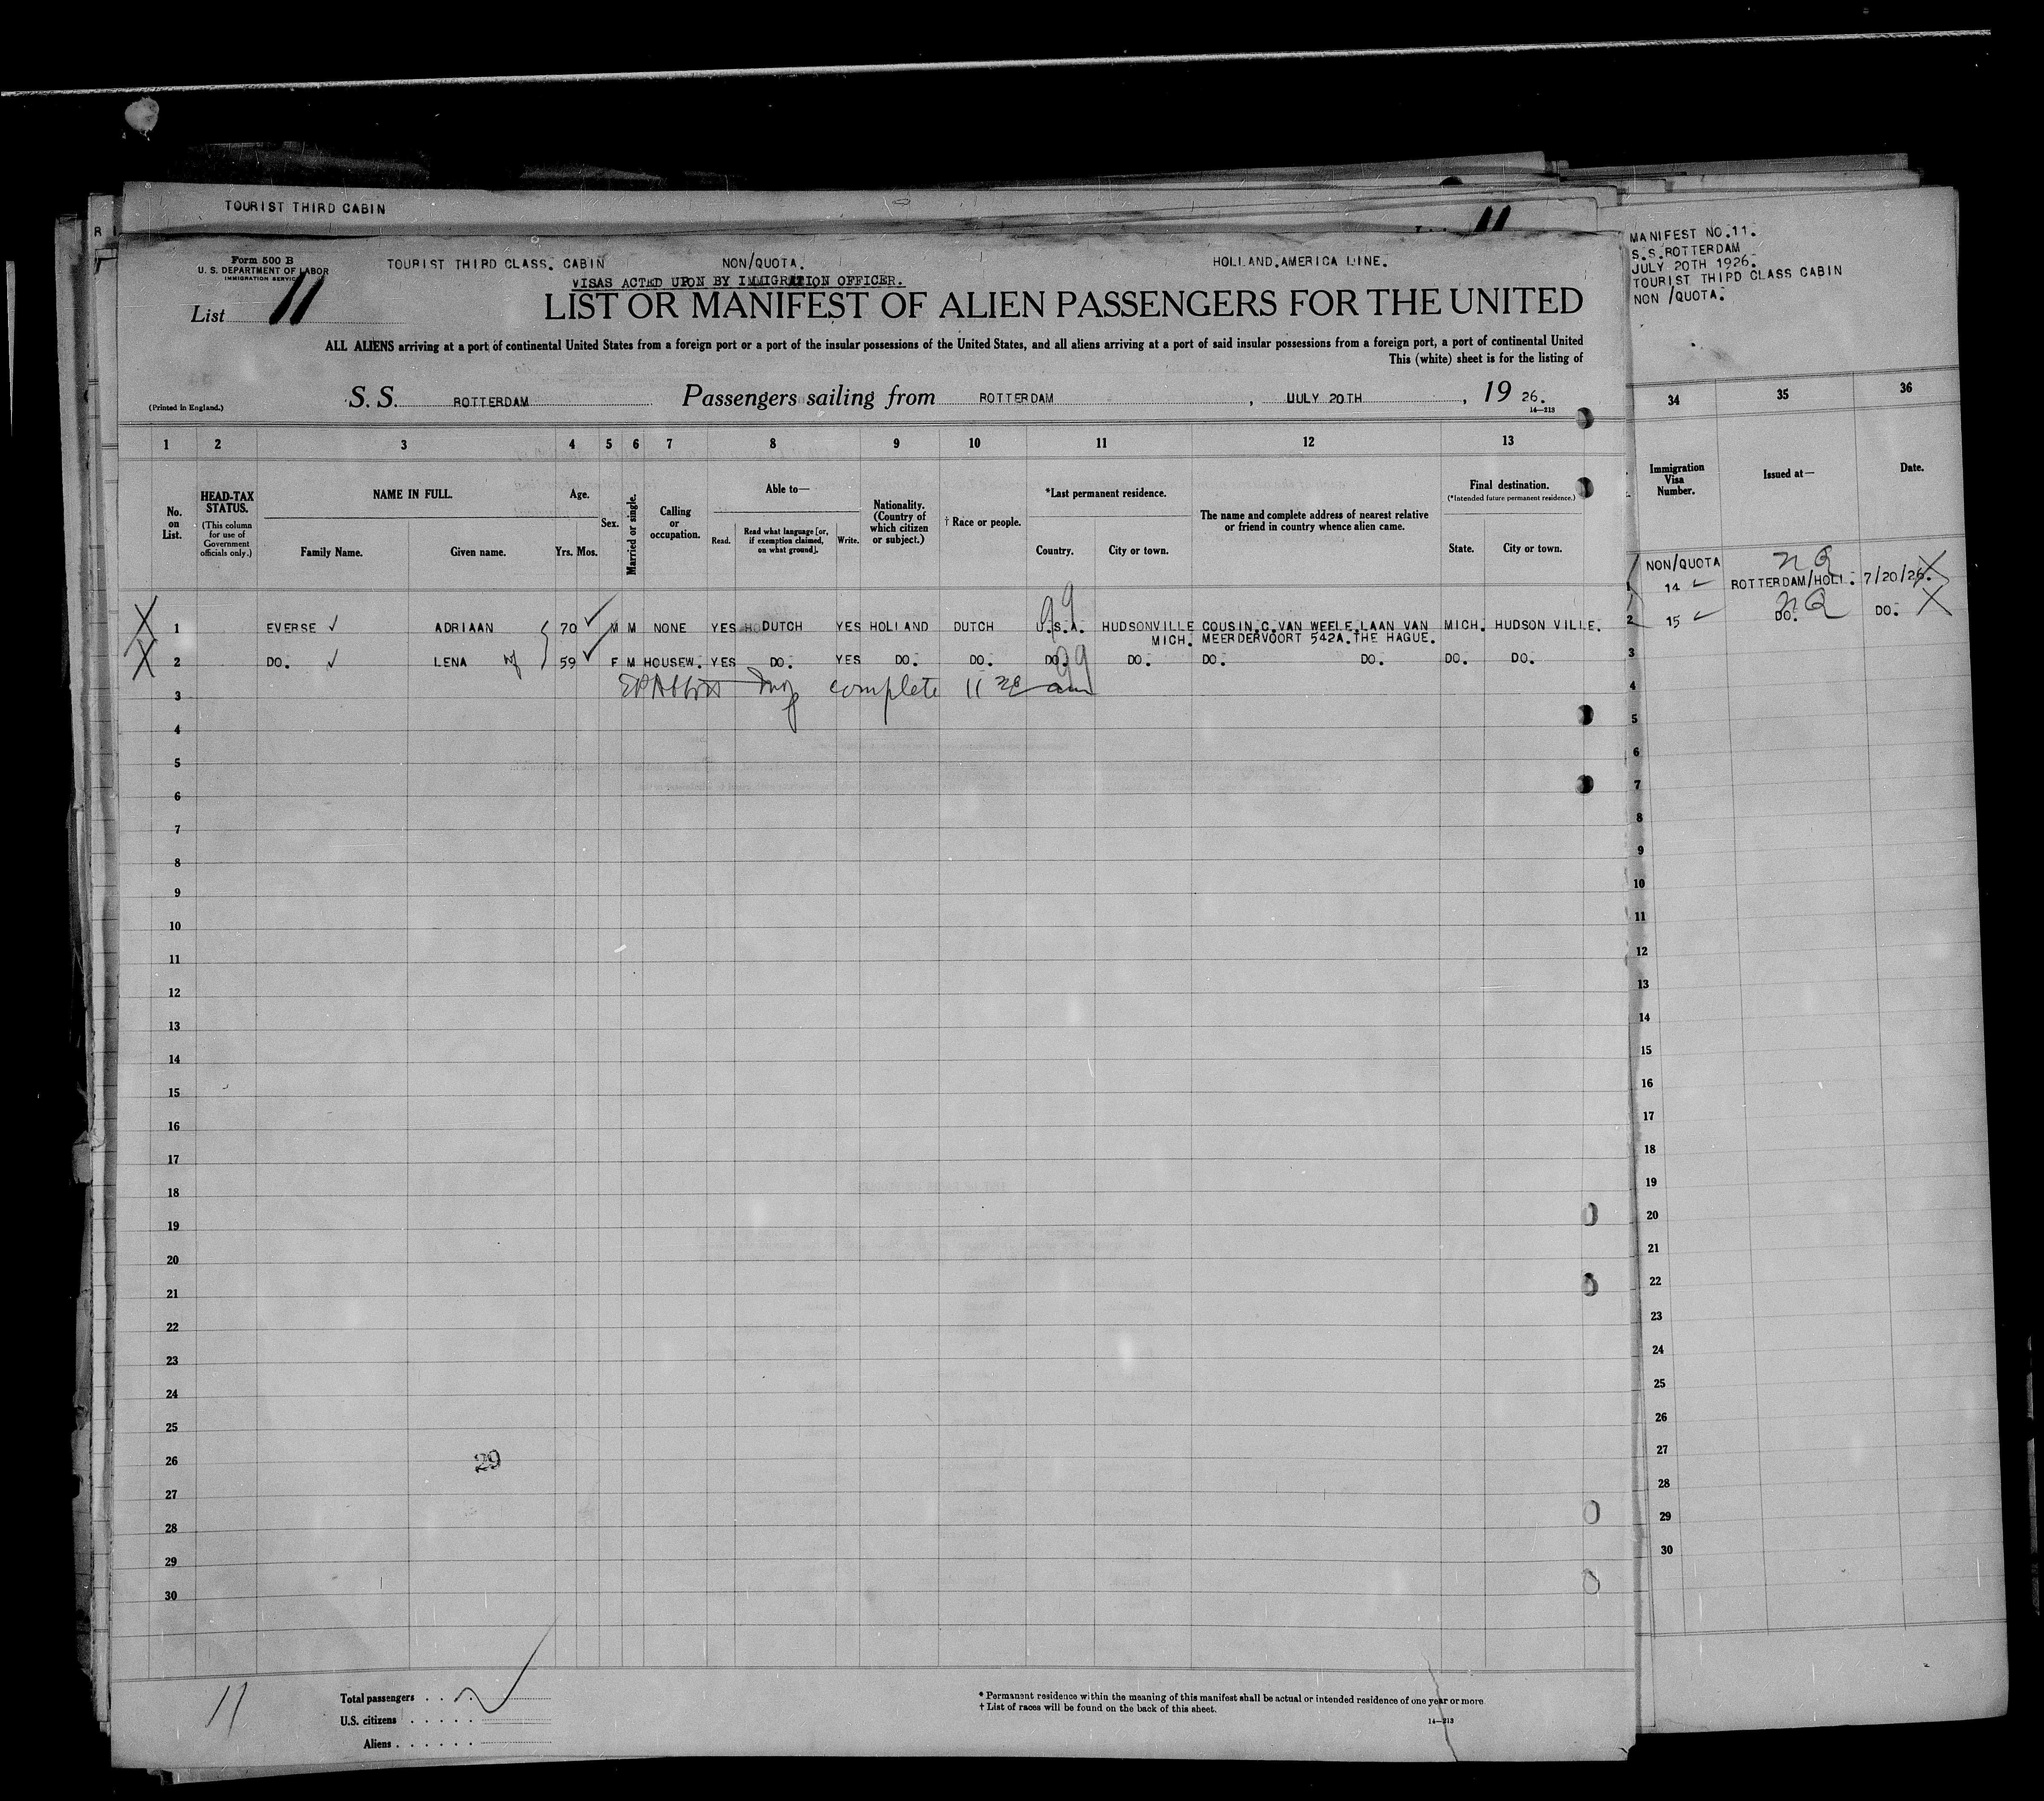 TOURIST THIRD CABIN
11
Form 500 B
U. S. DEPARTMENT OF LABOR
IMMIGRATION SERVICE
TOURIST THIRD CLASS. CABIN NON/QUOTA. HOLLAND.AMERICA LINE.
VISAS ACTED UPON BY IMMIGRATION OFFICER.
List 11
LIST OR MANIFEST OF ALIEN PASSENGERS FOR THE UNITED
ALL ALIENS arriving at a port of continental United States from a foreign port or a port of the insular possessions of the United States, and all aliens arriving at a port of said insular possessions from a foreign port, a port of continental United
This (white) sheet is for the listing of
(Printed in England.) S. S. ROTTERDAM Passengers sailing from ROTTERDAM, JULY 20TH, 19 26.
14—213
1 2 3 4 5 6 7 8 9 10 11 12 13
No. on List.
HEAD-TAX STATUS.
(This column for use of Government officials only.)
NAME IN FULL.
Family Name. Given name.
Age.
Yrs. Mos.
Sex.
Married or single.
Calling or occupation.
Able to—
Read. Read what language [or, if exemption claimed, on what ground]. Write.
Nationality. (Country of which citizen or subject.)
† Race or people.
*Last permanent residence.
Country. City or town.
The name and complete address of nearest relative or friend in country whence alien came.
Final destination.
(*Intended future permanent residence.)
State. City or town.
1 EVERSE ✓ ADRIAAN 70 ✓ M M NONE YES DUTCH YES HOLLAND DUTCH U.S.A. HUDSONVILLE COUSIN.C.VAN WEELE.LAAN VAN MICH. HUDSON VILLE.
MICH. MEERDERVOORT 542A.THE HAGUE.
2 DO. ✓ LENA wf 59 ✓ F M HOUSEW. YES DO. YES DO. DO. DO. DO. DO. DO. DO. DO.
99
99
complete 11 am
3
4
5
6
7
8
9
10
11
12
13
14
15
16
17
18
19
20
21
22
23
24
25
26
29
27
28
29
30
11
Total passengers
U.S. citizens
Aliens
* Permanent residence within the meaning of this manifest shall be actual or intended residence of one year or more.
† List of races will be found on the back of this sheet.
14—213
MANIFEST NO.11.
S.S.ROTTERDAM
JULY 20TH 1926.
TOURIST THIRD CLASS CABIN
NON /QUOTA.
34 35 36
Immigration Visa Number. Issued at— Date.
NON/QUOTA NQ
1 14 ✓ ROTTERDAM/HOLL. 7/20/26.
NQ
2 15 ✓ DO. DO.
3
4
5
6
7
8
9
10
11
12
13
14
15
16
17
18
19
20
21
22
23
24
25
26
27
28
29
30